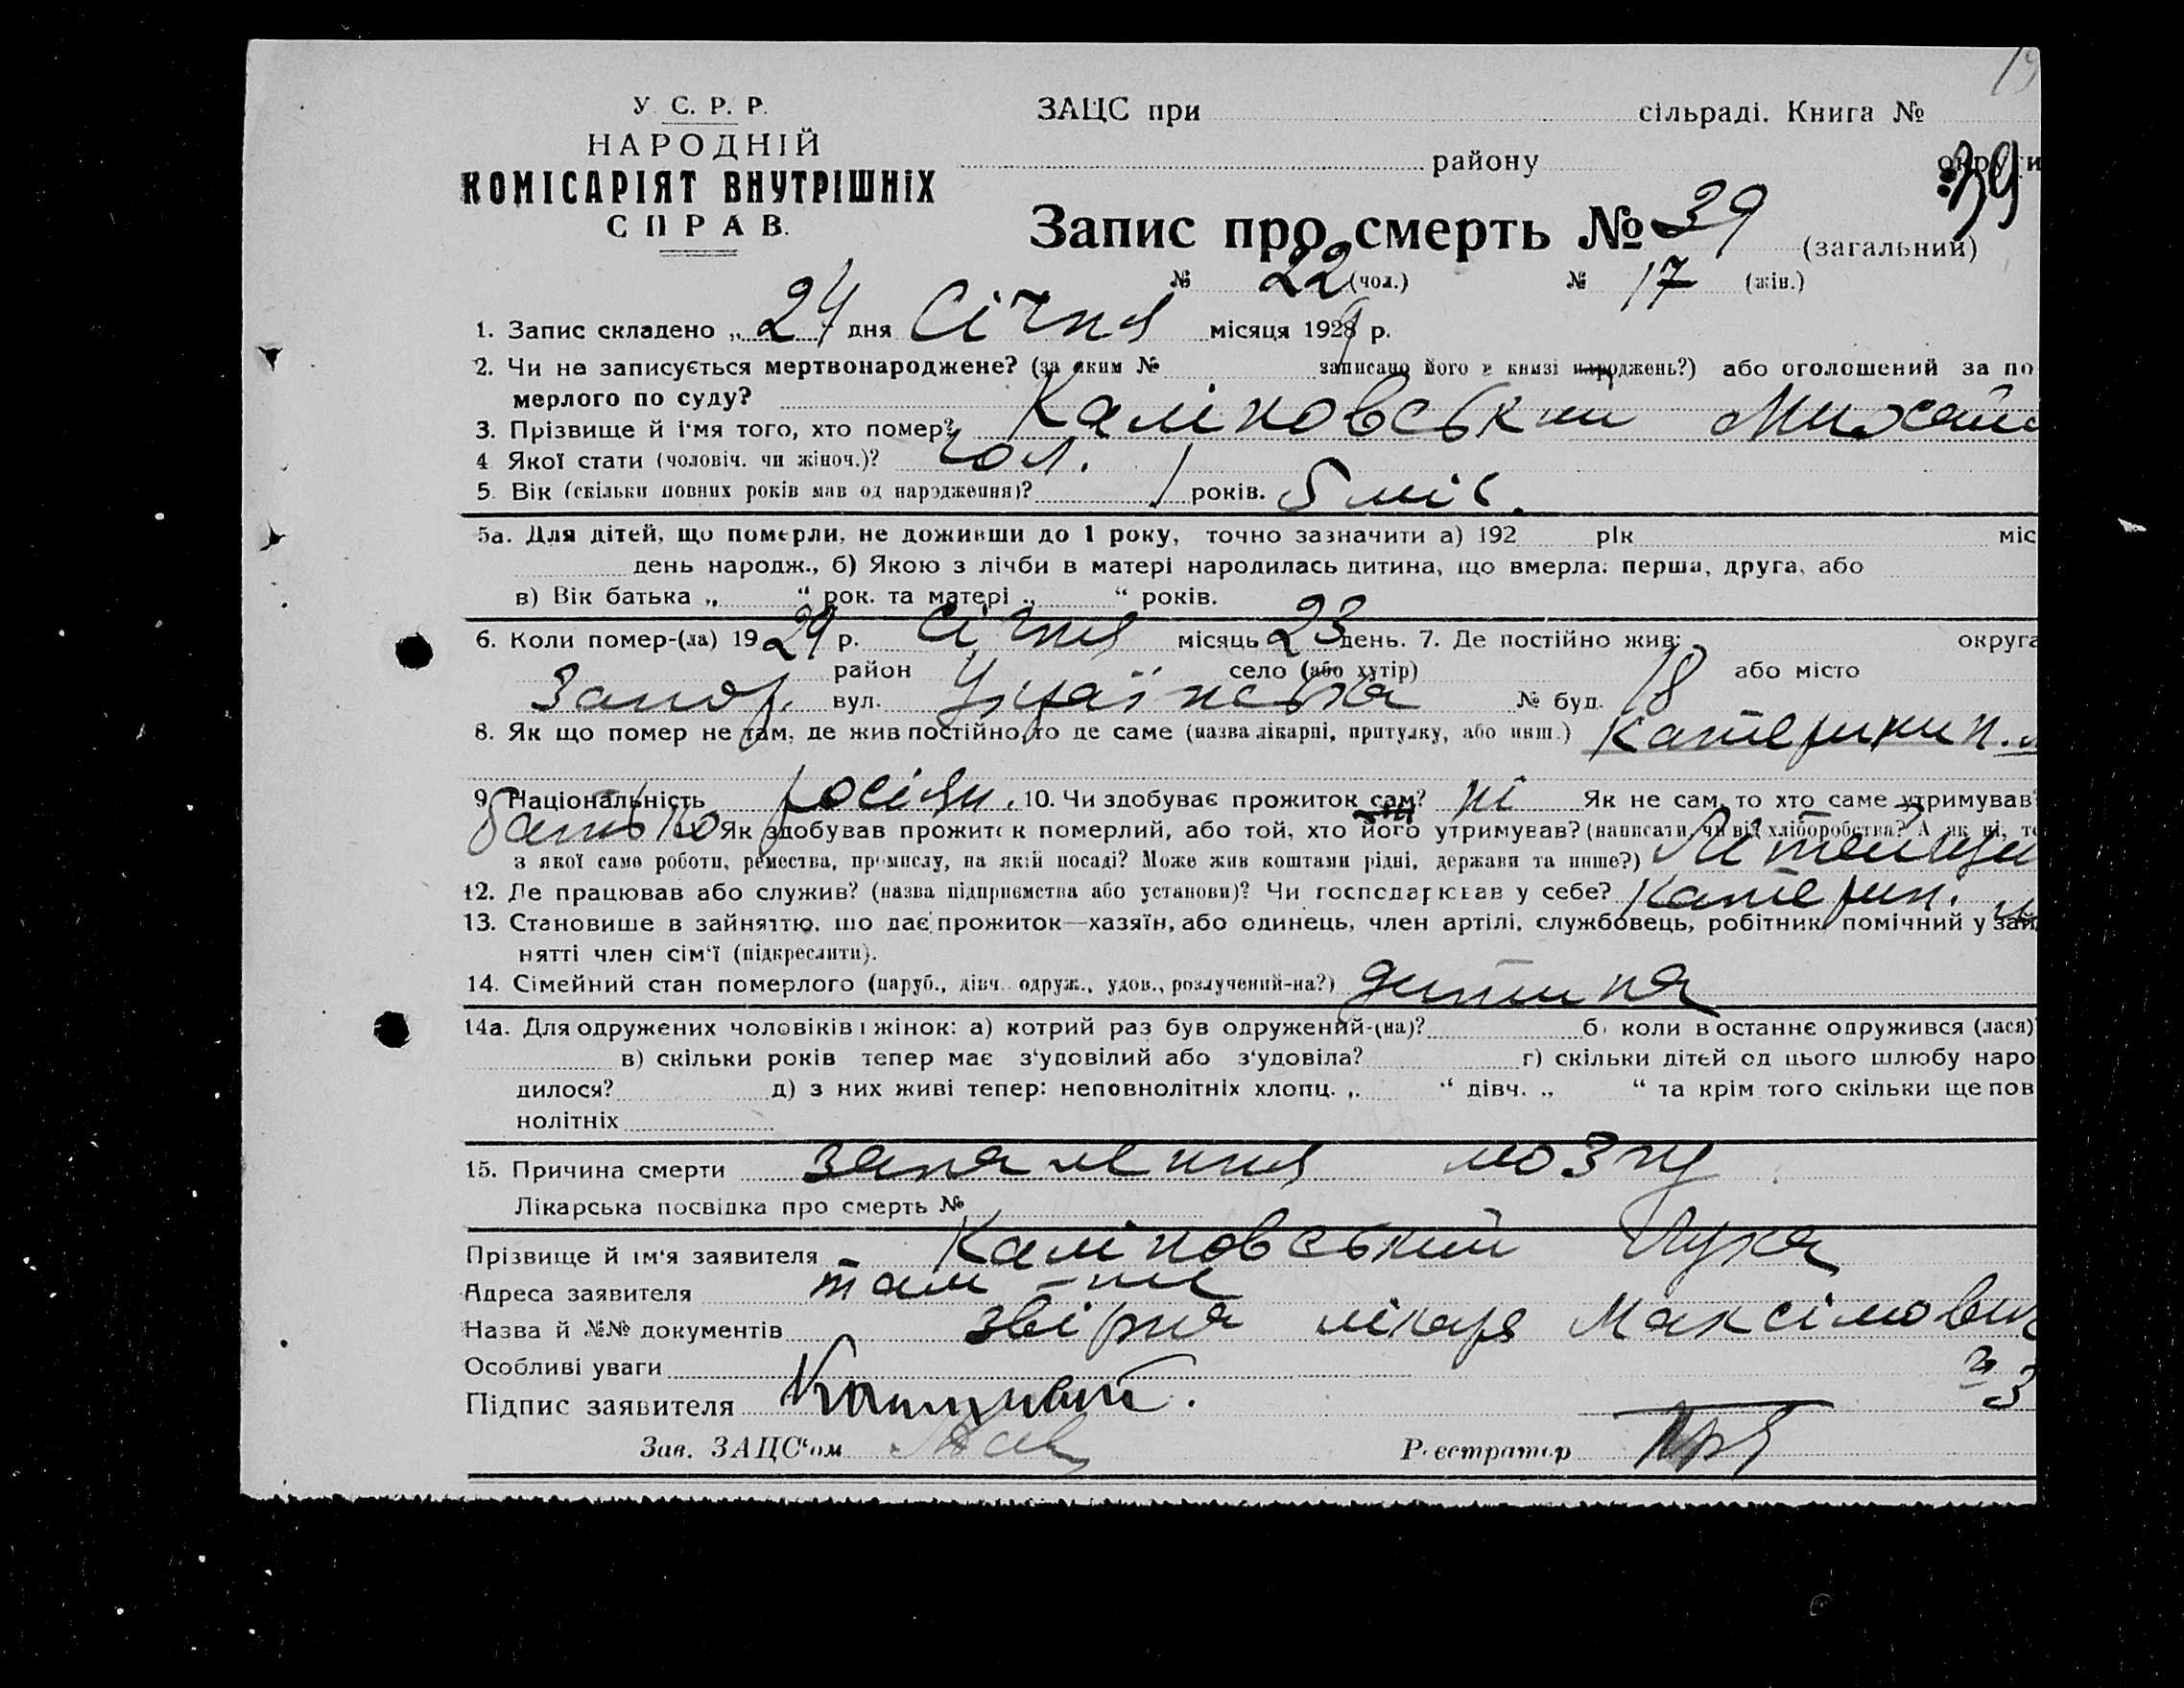 19
У. С. Р. Р.
НАРОДНІЙ
КОМІСАРІЯТ ВНУТРІШНІХ
СПРАВ.
ЗАЦС при сільраді. Книга №
району округи
39
Запис про смерть № 39 (загальний)
№ 22 (чол.) № 17 (жін.)
1. Запис складено „ 24 " дня Січня місяця 1929 р.
2. Чи не записується мертвонароджене? (за яким № записано його в книзі народжень?) або оголошений за по
мерлого по суду?
3. Прізвище й ім'я того, хто помер? Каліновський Михайл
4. Якої стати (чоловіч. чи жіноч.)? чол.
5. Вік (скільки повних років мав од народження)? 1 років. 5 міс.
5а. Для дітей, що померли, не доживши до 1 року, точно зазначити а) 192 рік міс
день народж., б) Якою з лічби в матері народилась дитина, що вмерла: перша, друга, або
в) Вік батька „ “ рок. та матері „ “ років.
6. Коли помер-(ла) 1929 р. Січня місяць 23 день. 7. Де постійно жив: округа
район село (або хутір) або місто
Запор. вул. Українська № буд. 18
8. Як що помер не там, де жив постійно, то де саме (назва лікарні, притулку, або инш.) Катеринин.
9. Національність росіян. 10. Чи здобуває прожиток сам? ні Як не сам, то хто саме утримував?
батько Як здобував прожиток померлий, або той, хто його утримував? (написати, чи від хліборобства? А як ні, то
з якої само роботи, ремества, промислу, на якій посаді? Може жив коштами рідні, держави та инше?) Літейщи
12. Де працював або служив? (назва підприємства або установи)? Чи господарював у себе? Катерин.
13. Становище в зайняттю, що дає прожиток—хазяїн, або одинець, член артілі, службовець, робітник, помічний у зай
нятті член сім‘ї (підкреслити).
14. Сімейний стан померлого (паруб., дівч. одруж., удов., розлучений-на?) дитина
14а. Для одружених чоловіків і жінок: а) котрий раз був одружений-(на)? б) коли востаннє одружився (лася)?
в) скільки років тепер має з‘удовілий або з‘удовіла? г) скільки дітей од цього шлюбу наро
дилося? д) з них живі тепер: неповнолітніх хлопц. „ “ дівч. „ “ та крім того скільки ще пов
нолітніх
15. Причина смерти запалення мозгу
Лікарська посвідка про смерть №
Прізвище й ім‘я заявителя Каліновський Лука
Адреса заявителя там-же
Назва й №№ документів звірна лікаря Максімович
Особливі уваги
Підпис заявителя
Зав. ЗАЦС‘ом Реєстратор